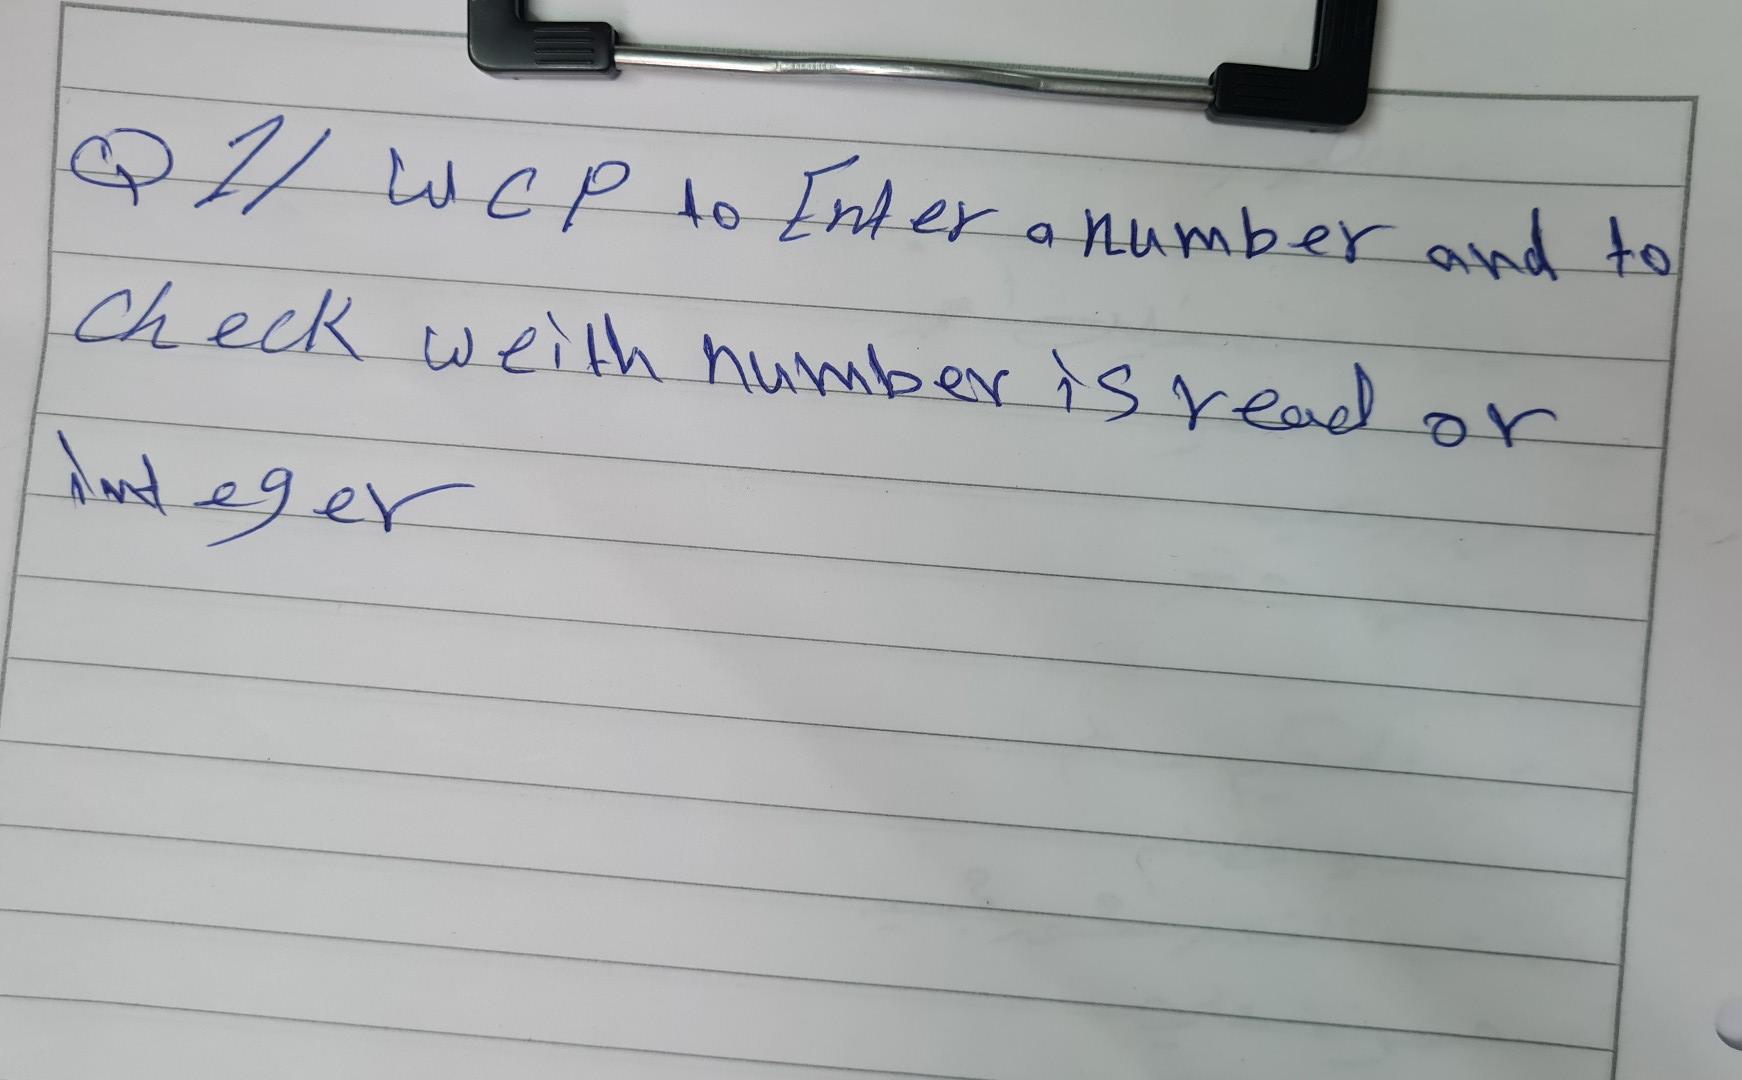 Q1/ WCP to Enter a number and to
check weith number is read or
integer